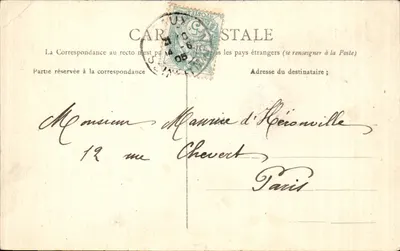 CARTE POSTALE
La Correspondance au recto n'est pas les pays étrangers (se renseigner à la Poste)
Partie réservée à la correspondance
Adresse du destinataire ;
Monsieur Maurice d'Hérouville
12 rue Chevert
Paris